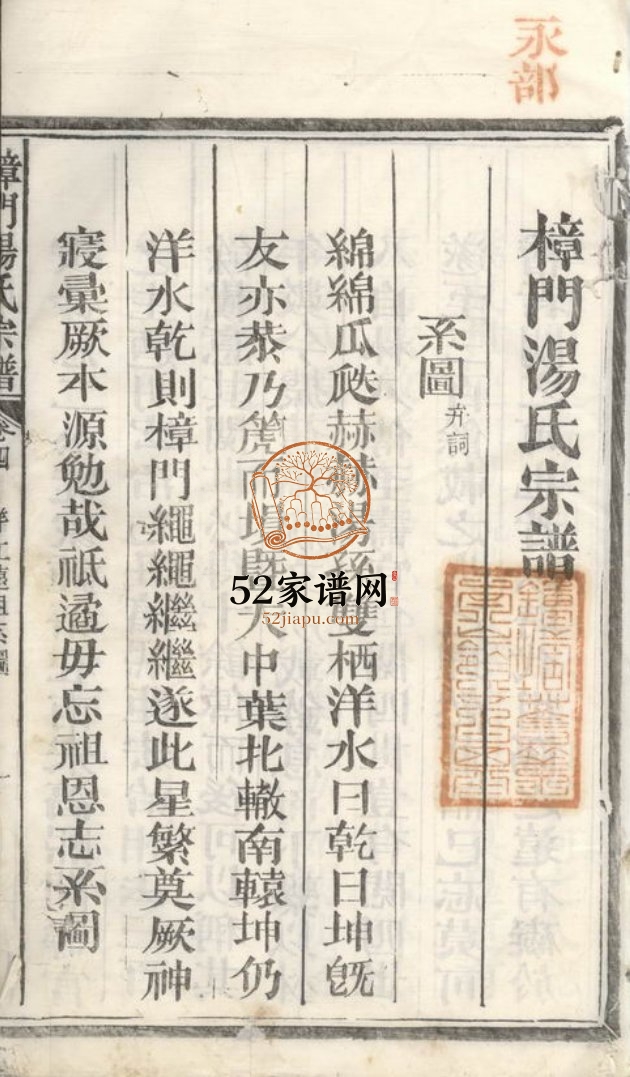 永部
樟門湯氏宗譜
系圖 弁詞
綿綿瓜瓞赫赫湯孫雙栖洋水曰乾曰坤旣
友亦恭乃篪而塤曁大中葉北轍南轅坤仍
洋水乾則樟門繩繩繼繼遂此星繁奠厥神
寢彙厥本源勉哉祗遹毋忘祖恩志系圖
樟門湯氏宗譜 卷四
52家谱网
52jiapu.com